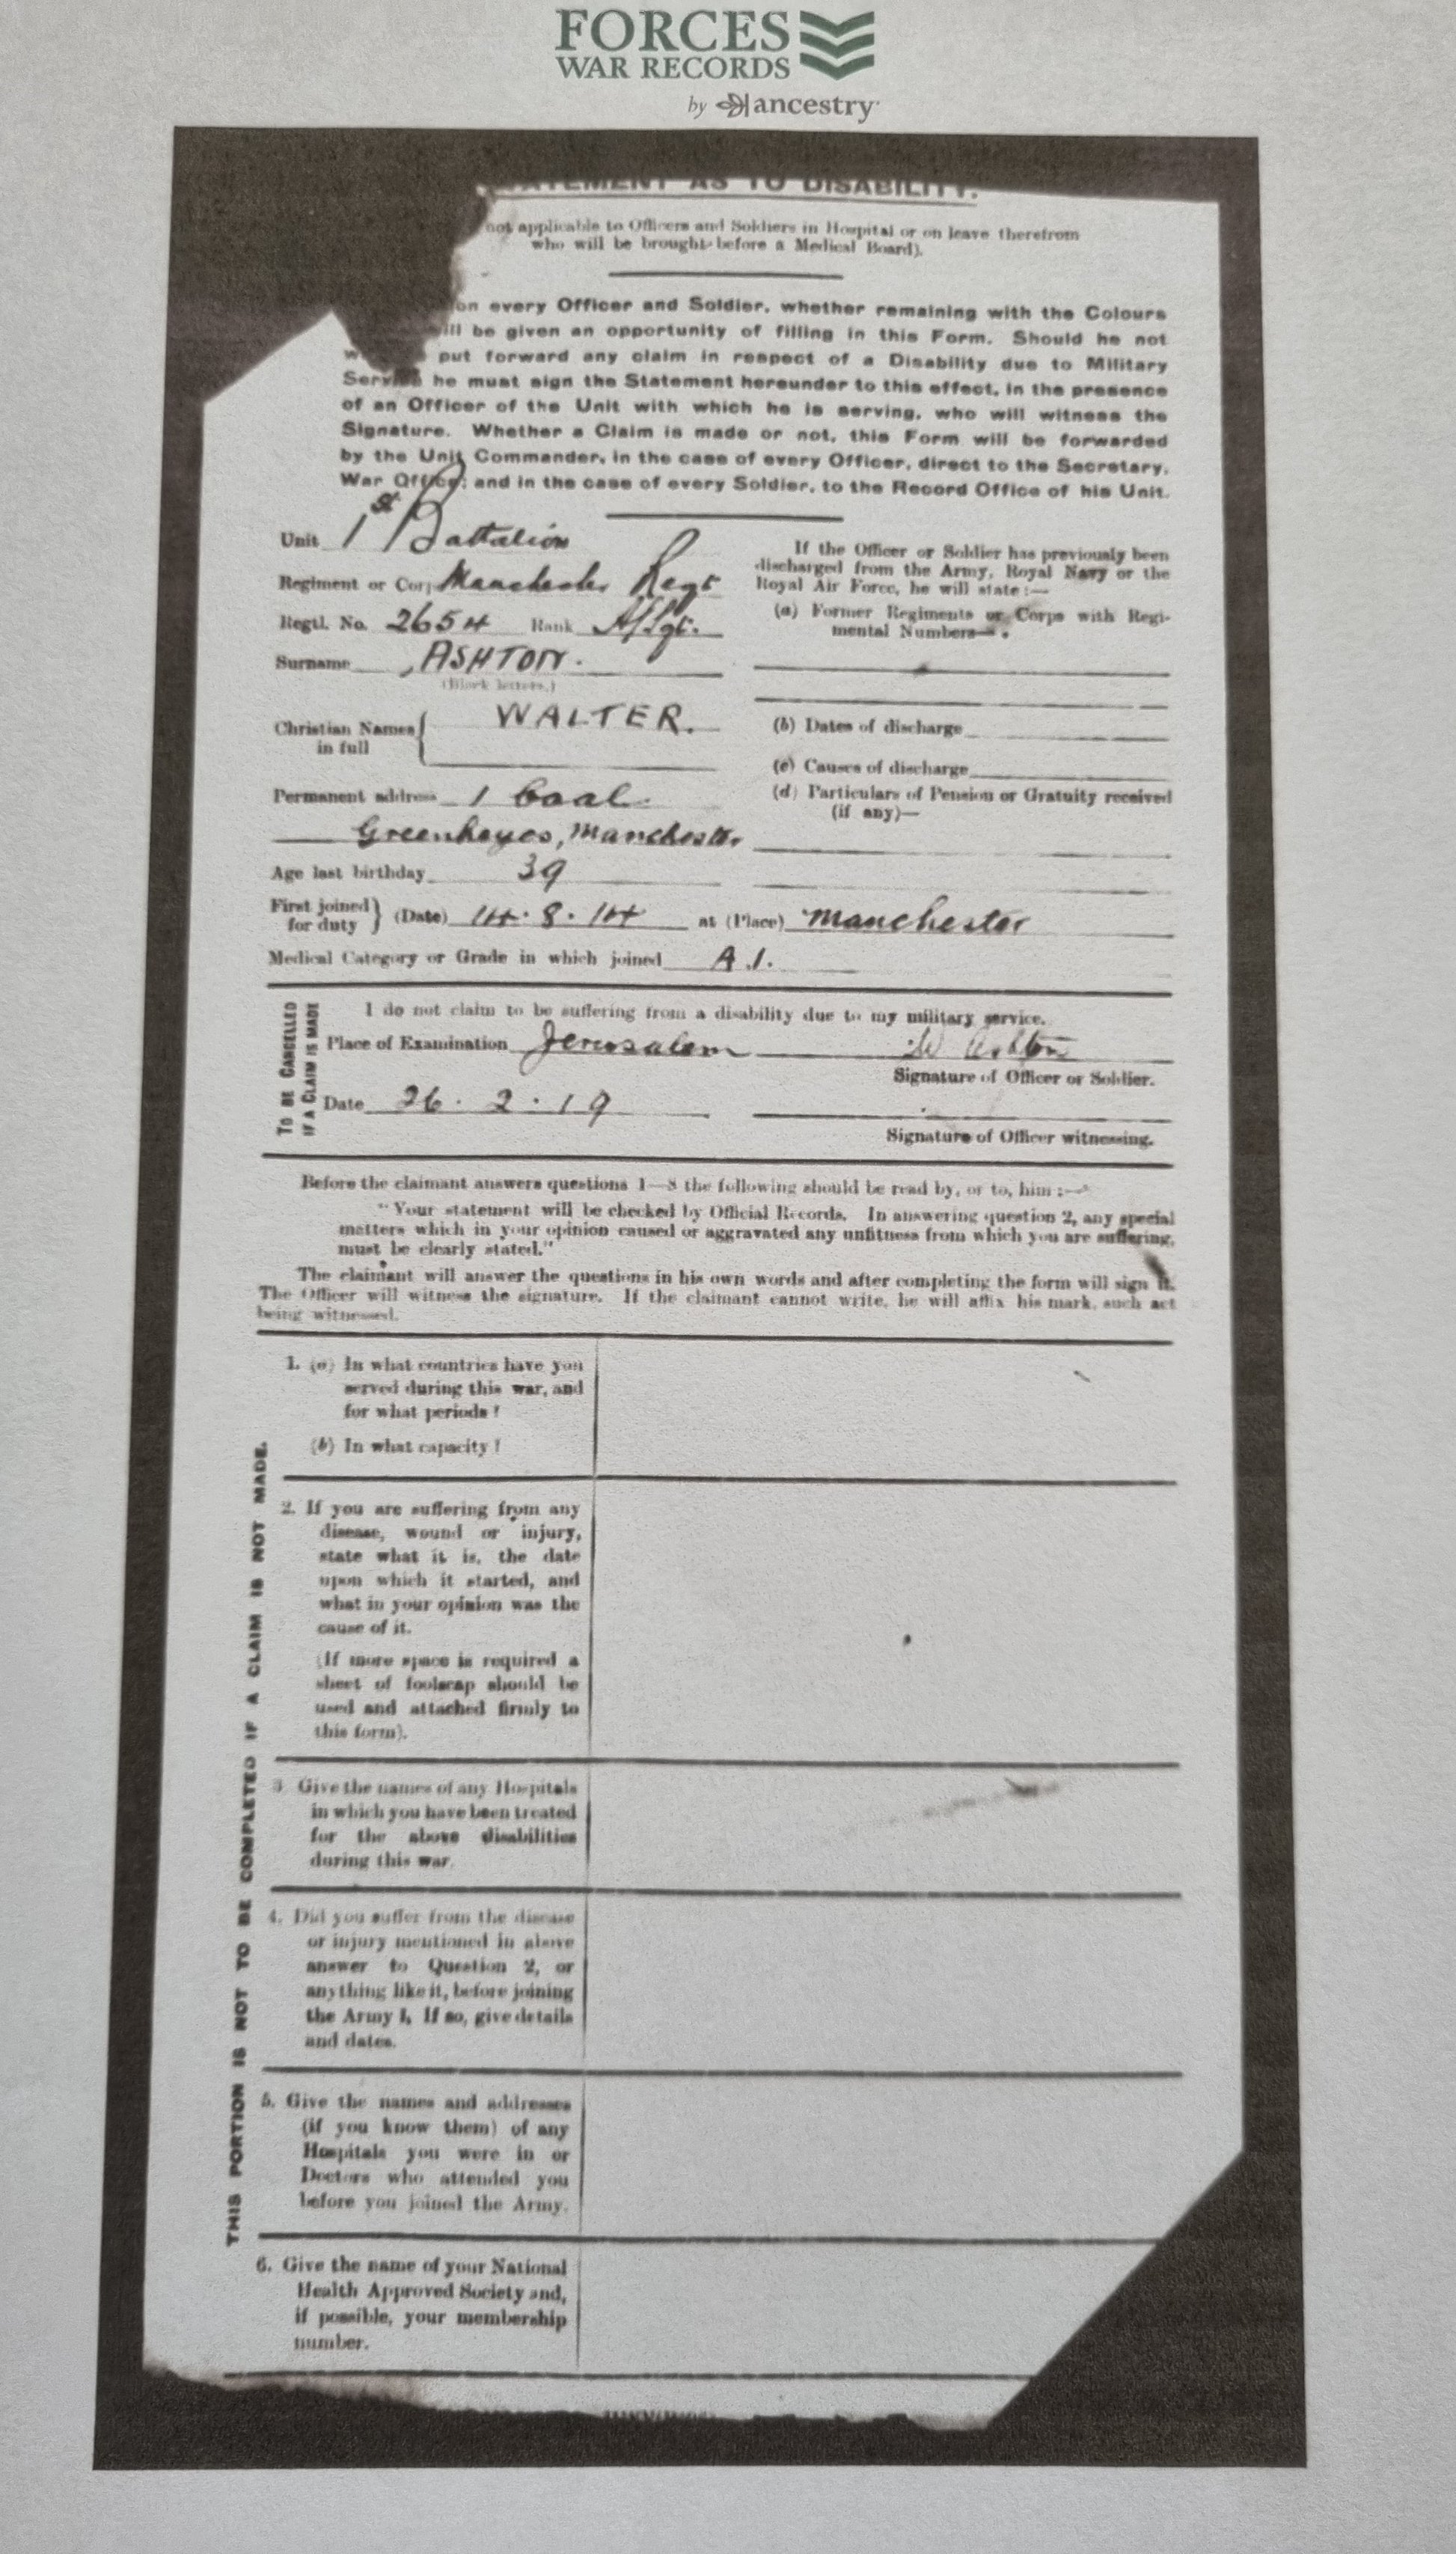 FORCES
WAR RECORDS
by ancestry
STATEMENT AS TO DISABILITY.
not applicable to Officers and Soldiers in Hospital or on leave therefrom
who will be brought before a Medical Board).
on every Officer and Soldier, whether remaining with the Colours
will be given an opportunity of filling in this Form. Should he not
put forward any claim in respect of a Disability due to Military
Service he must sign the Statement hereunder to this effect, in the presence
of an Officer of the Unit with which he is serving, who will witness the
Signature. Whether a Claim is made or not, this Form will be forwarded
by the Unit Commander, in the case of every Officer, direct to the Secretary,
War Office; and in the case of every Soldier, to the Record Office of his Unit.
Unit 1st Battalion
Regiment or Corps Manchester Regt
Regtl. No. 2654 Rank A/Sgt.
Surname ASHTON.
(Block letters.)
Christian Names in full WALTER.
Permanent address 1 Coal
Greenheyes, Manchester
Age last birthday 39
First joined for duty (Date) 14.8.14 at (Place) Manchester
Medical Category or Grade in which joined A1.
If the Officer or Soldier has previously been
discharged from the Army, Royal Navy or the
Royal Air Force, he will state:—
(a) Former Regiments or Corps with Regi-
mental Numbers—
(b) Dates of discharge
(c) Causes of discharge
(d) Particulars of Pension or Gratuity received
(if any)—
TO BE CANCELLED
IF A CLAIM IS MADE
I do not claim to be suffering from a disability due to my military service.
Place of Examination Jerusalem W Ashton
Signature of Officer or Soldier.
Date 26.2.19
Signature of Officer witnessing.
Before the claimant answers questions 1—8 the following should be read by, or to, him:—
"Your statement will be checked by Official Records. In answering question 2, any special
matters which in your opinion caused or aggravated any unfitness from which you are suffering,
must be clearly stated."
The claimant will answer the questions in his own words and after completing the form will sign it.
The Officer will witness the signature. If the claimant cannot write, he will affix his mark, such act
being witnessed.
THIS PORTION IS NOT TO BE COMPLETED IF A CLAIM IS NOT MADE.
1. (a) In what countries have you
served during this war, and
for what periods?
(b) In what capacity?
2. If you are suffering from any
disease, wound or injury,
state what it is, the date
upon which it started, and
what in your opinion was the
cause of it.
(If more space is required a
sheet of foolscap should be
used and attached firmly to
this form).
3 Give the names of any Hospitals
in which you have been treated
for the above disabilities
during this war.
4. Did you suffer from the disease
or injury mentioned in above
answer to Question 2, or
anything like it, before joining
the Army?. If so, give details
and dates.
5. Give the names and addresses
(if you know them) of any
Hospitals you were in or
Doctors who attended you
before you joined the Army.
6. Give the name of your National
Health Approved Society and,
if possible, your membership
number.